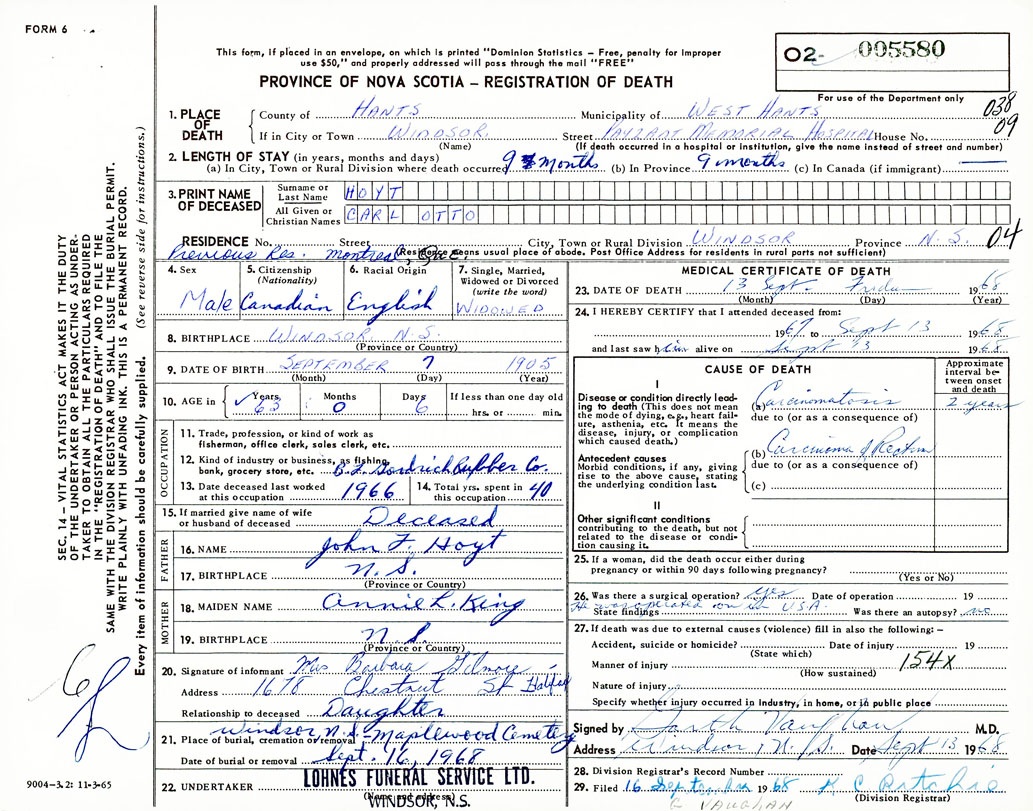 FORM 6
This form, if placed in an envelope, on which is printed "Dominion Statistics – Free, penalty for improper
use $50," and properly addressed will pass through the mail "FREE"
O2- 005580
PROVINCE OF NOVA SCOTIA – REGISTRATION OF DEATH
For use of the Department only
038
09
1. PLACE OF DEATH
County of HANTS Municipality of WEST HANTS
If in City or Town WINDSOR Street PAYZANT MEMORIAL HOSPITAL House No.
(Name) (If death occurred in a hospital or institution, give the name instead of street and number)
2. LENGTH OF STAY (in years, months and days)
(a) In City, Town or Rural Division where death occurred 9 months (b) In Province 9 months (c) In Canada (if immigrant)
3. PRINT NAME OF DECEASED
Surname or Last Name HOYT
All Given or Christian Names CARL OTTO
RESIDENCE No. Street City, Town or Rural Division WINDSOR Province N.S. 04
Previous Res. Montreal, Que. (Residence means usual place of abode. Post Office Address for residents in rural parts not sufficient)
4. Sex Male
5. Citizenship (Nationality) Canadian
6. Racial Origin English
7. Single, Married, Widowed or Divorced (write the word) WIDOWED
8. BIRTHPLACE WINDSOR N.S.
(Province or Country)
9. DATE OF BIRTH SEPTEMBER 7 1905
(Month) (Day) (Year)
10. AGE in Years 63 Months 0 Days 6 If less than one day old
hrs. or min.
OCCUPATION
11. Trade, profession, or kind of work as
fisherman, office clerk, sales clerk, etc.
12. Kind of industry or business, as fishing,
bank, grocery store, etc. B.F. Goodrich Rubber Co.
13. Date deceased last worked
at this occupation 1966
14. Total yrs. spent in
this occupation 40
15. If married give name of wife
or husband of deceased Deceased
FATHER
16. NAME John F. Hoyt
17. BIRTHPLACE N.S.
(Province or Country)
MOTHER
18. MAIDEN NAME Annie L. King
19. BIRTHPLACE N.S.
(Province or Country)
20. Signature of informant Mrs Barbara Gilmore
Address 1678 Chestnut St Halifax
Relationship to deceased Daughter
21. Place of burial, cremation or removal Windsor, N.S. - Maplewood Cemetery
Date of burial or removal Sept. 16, 1968
22. UNDERTAKER LOHNES FUNERAL SERVICE LTD.
(Name and address)
WINDSOR, N.S.
MEDICAL CERTIFICATE OF DEATH
23. DATE OF DEATH 13 Sept Friday 1968
(Month) (Day) (Year)
24. I HEREBY CERTIFY that I attended deceased from:
1967 to Sept 13 1968
and last saw him alive on Sept 13 1968
CAUSE OF DEATH
Approximate interval between onset and death
I
Disease or condition directly leading to death (This does not
mean the mode of dying, e.g., heart failure, asthenia, etc. It means the
disease, injury, or complication
which caused death.)
(a) Carcinomatosis 2 years
due to (or as a consequence of)
Antecedent causes
Morbid conditions, if any, giving
rise to the above cause, stating
the underlying condition last.
(b) Carcinoma of Rectum
due to (or as a consequence of)
(c)
II
Other significant conditions
contributing to the death, but not
related to the disease or condition causing it.
25. If a woman, did the death occur either during
pregnancy or within 90 days following pregnancy?
(Yes or No)
26. Was there a surgical operation? Yes Date of operation 19
He was operated on in U.S.A.
State findings Was there an autopsy? no
27. If death was due to external causes (violence) fill in also the following: –
Accident, suicide or homicide? Date of injury 19
(State which)
Manner of injury 154X
(How sustained)
Nature of injury
Specify whether injury occurred in Industry, in home, or in public place
Signed by Garth Vaughan M.D.
Address Windsor, N.S. Date Sept 13 1968
28. Division Registrar's Record Number
29. Filed 16 September 1968 K C Ritchie
(Division Registrar)
G VAUGHAN
9004-3.2: 11-3-65
SEC. 14 – VITAL STATISTICS ACT MAKES IT THE DUTY
OF THE UNDERTAKER OR PERSON ACTING AS UNDER-
TAKER TO OBTAIN ALL THE PARTICULARS REQUIRED
IN THE "REGISTRATION OF DEATH" AND TO FILE THE
SAME WITH THE DIVISION REGISTRAR WHO SHALL ISSUE THE BURIAL PERMIT.
WRITE PLAINLY WITH UNFADING INK. THIS IS A PERMANENT RECORD.
Every item of information should be carefully supplied. (See reverse side for instructions.)